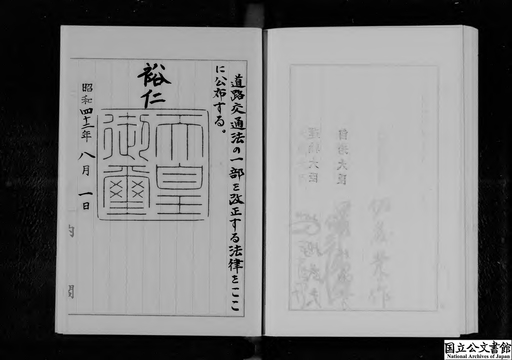 道路交通法の一部を改正する法律をここ
に公布する。
裕仁
天皇
御璽
昭和四十二年
八月
一日
内
閣
自治大臣
運輸大臣
国立公文書館
National Archives of Japan